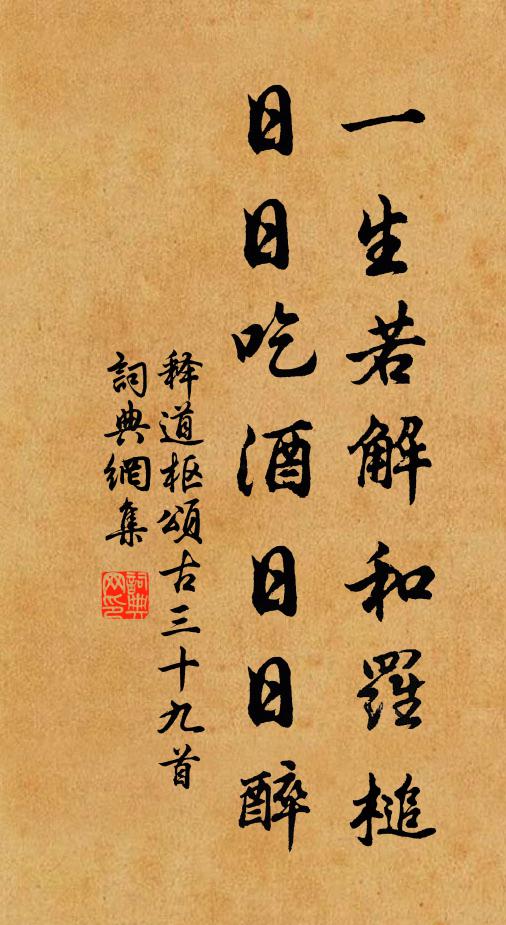 一生若解和羅槌
日日吃酒日日醉
释道枢頌古三十九首
詞典網集
詞典网印